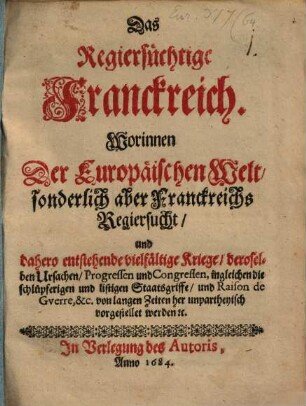 Das
Regiersüchtige
Franckreich.
Worinnen
Der Europäischen Welt/
sonderlich aber Franckreichs
Regiersucht/
und
dahero entstehende vielfältige Kriege/ derosel-
ben Ursachen/ Progressen und Congressen, ingleichen die
schlüpferigen und listigen Staatsgriffe/ und Raison de
Gverre, &c. von langen Zeiten her unpartheyisch
vorgestellet werden ꝛc.
In Verlegung des Autoris,
Anno 1684.